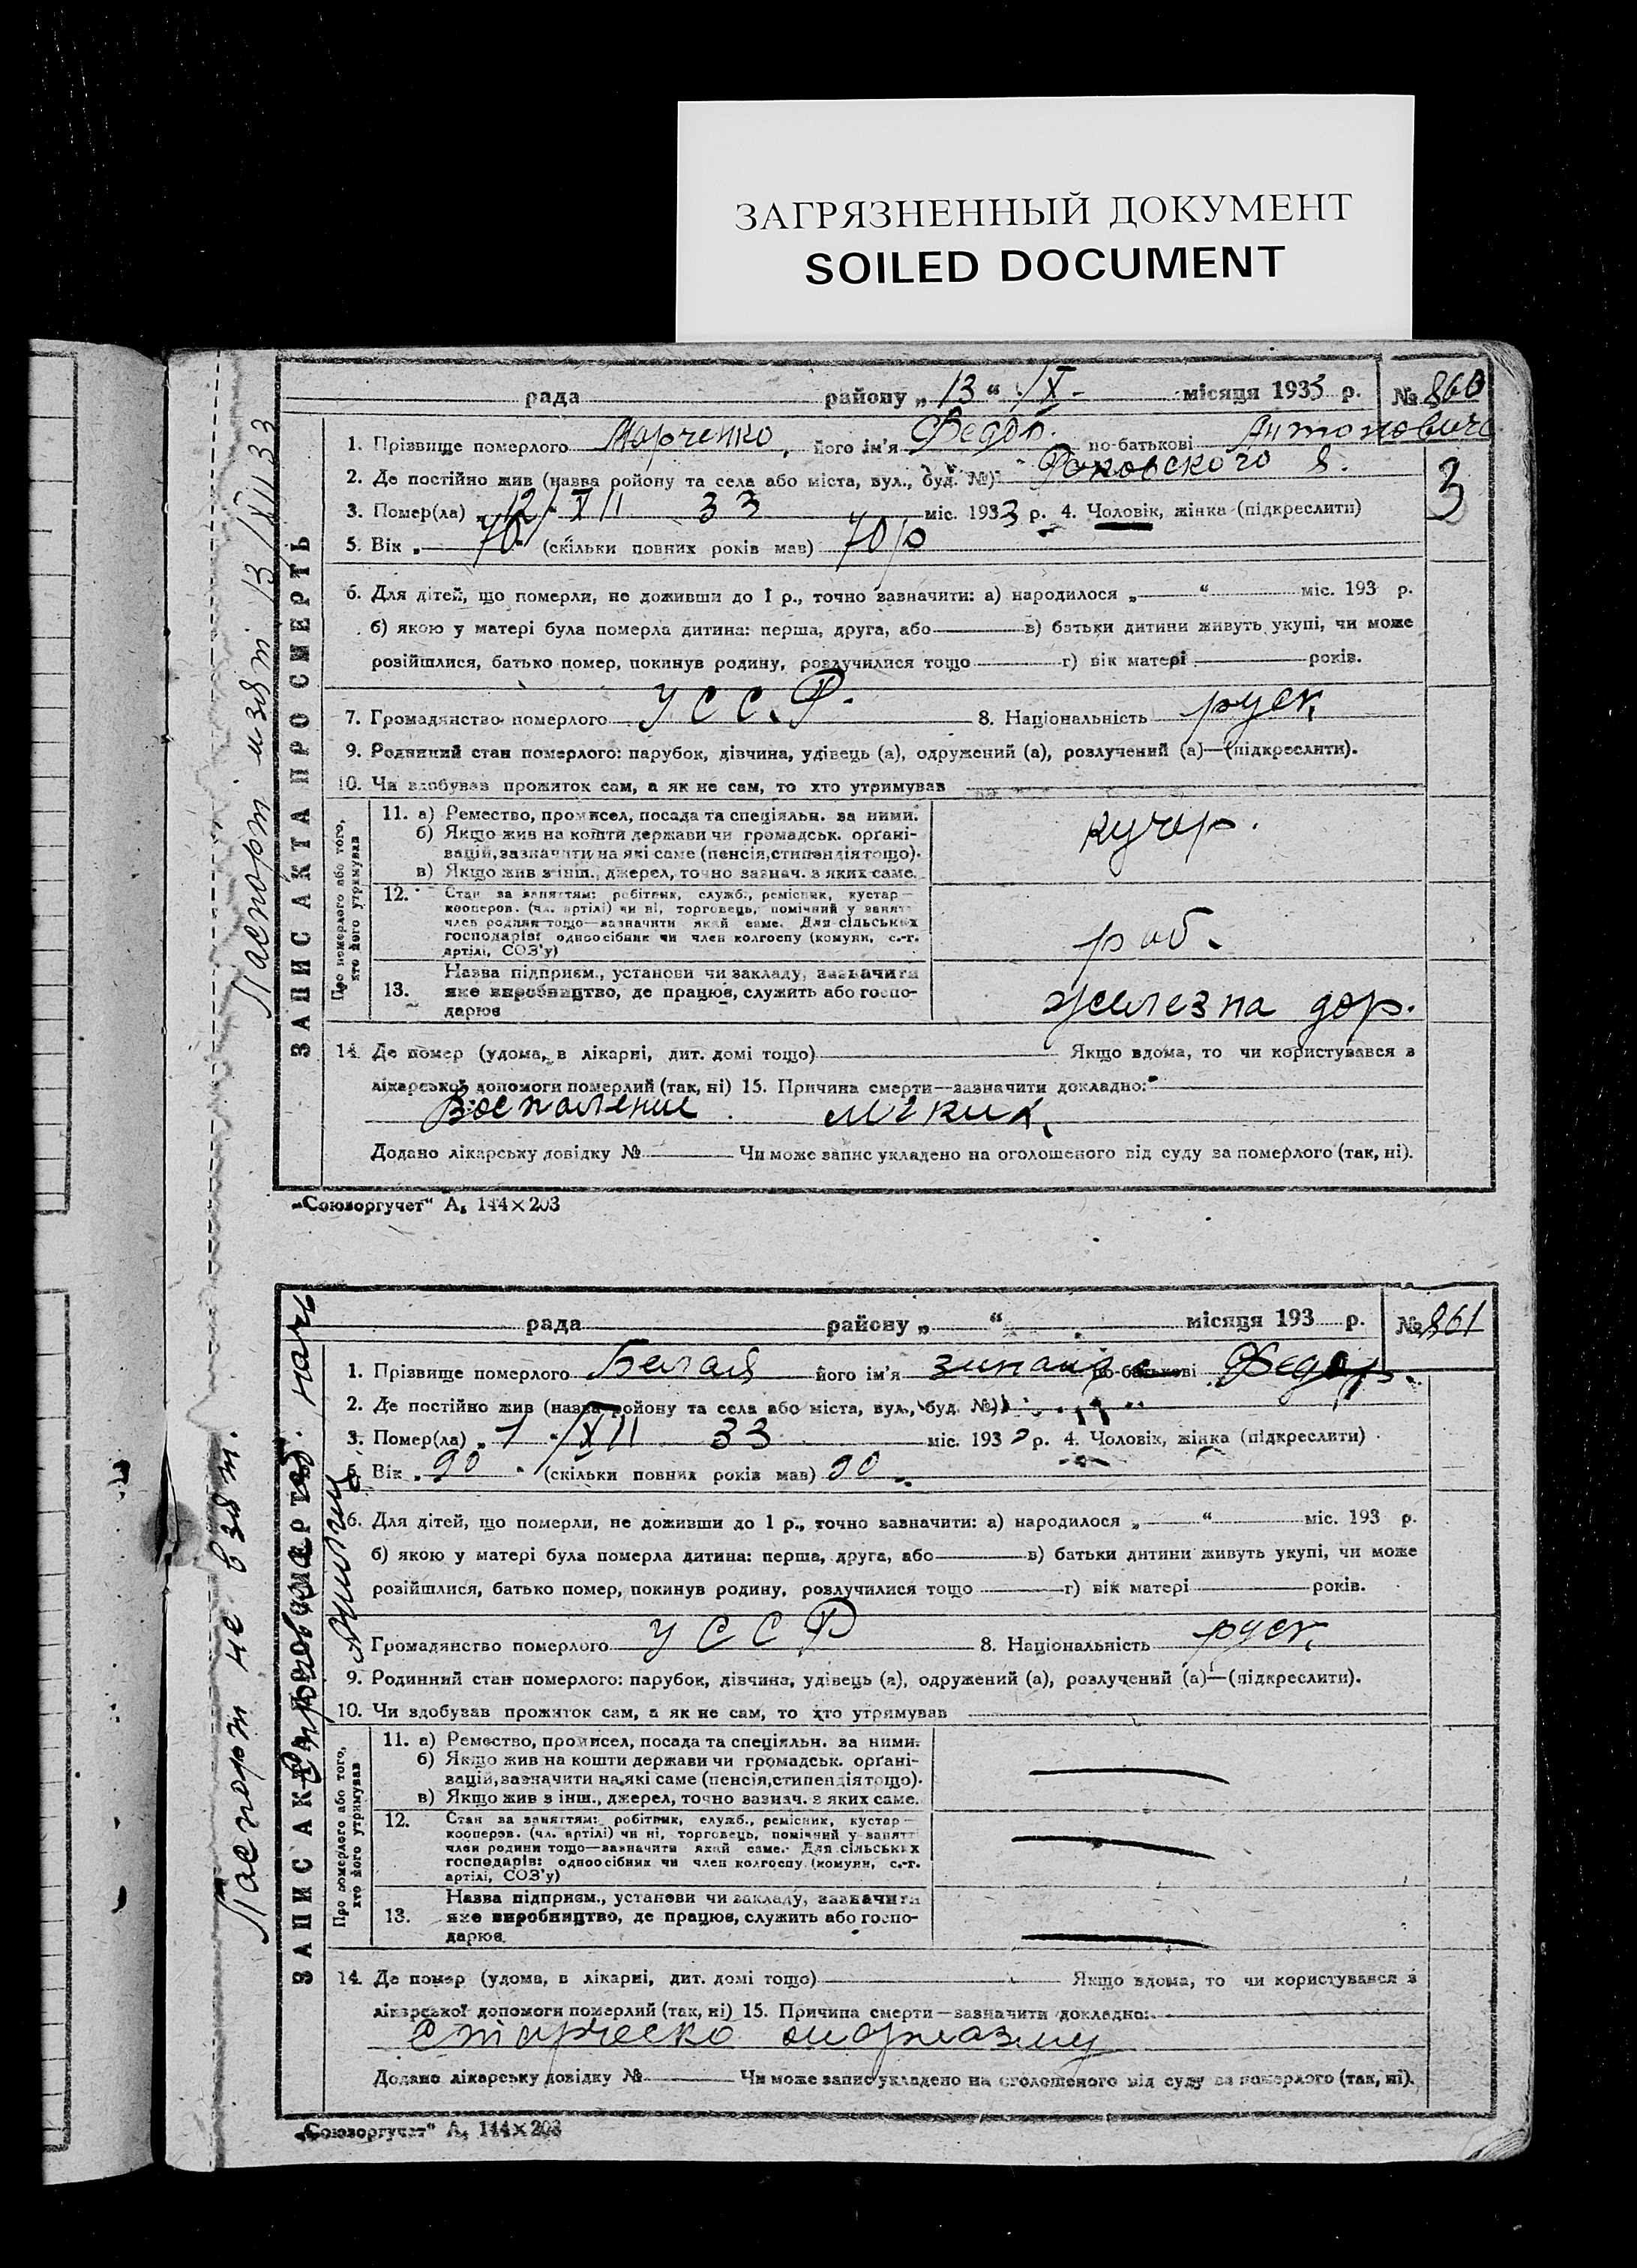 ЗАГРЯЗНЕННЫЙ ДОКУМЕНТ
SOILED DOCUMENT
рада району „ 13 “ IX - місяця 1933 р. № 860
1. Прізвище померлого Марченко, його ім'я Федор. по-батькові Антонович
2. Де постійно жив (назва району та села або міста, вул., буд. №) Раковского 8.
3
3. Помер(ла) „ 12 XII 33 міс. 1933 р. 4. Чоловік, жінка (підкреслити)
5. Вік „ 70 (скільки повних років мав) 70
6. Для дітей, що померли, не доживши до 1 р., точно зазначити: а) народилося „ “ міс. 193 р.
б) якою у матері була померла дитина: перша, друга, або в) батьки дитини живуть укупі, чи може
розійшлися, батько помер, покинув родину, розлучилися тощо г) вік матері років.
7. Громадянство померлого УССР. 8. Національність руск.
9. Родинний стан померлого: парубок, дівчина, удівець (а), одружений (а), розлучений (а)—(підкреслити).
10. Чи здобував прожиток сам, а як не сам, то хто утримував
Про померлого або того, хто його утримував
11. а) Ремество, промисел, посада та спеціяльн. за ними.
б) Якщо жив на кошти держави чи громадськ. органі-
зацій, зазначити на які саме (пенсія, стипендія тощо).
в) Якщо жив з інш., джерел, точно зазнач. з яких саме.
кучер.
12. Стан за заняттям: робітник, служб., ремісник, кустар—
кооперов. (чл. артілі) чи ні, торговець, помічний у занятт
член родини тощо—зазначити який саме. Для сільських
господарів: одноосібник чи член колгоспу (комуни, с.-г.
артілі, СОЗ'у)
раб.
Назва підприєм., установи чи закладу, зазначити
13. яке виробництво, де працює, служить або госпо-
дарює
железна дор.
14. Де помер (удома, в лікарні, дит. домі тощо) Якщо вдома, то чи користувався з
лікарської допомоги померлий (так, ні) 15. Причина смерти—зазначити докладно:
Воспаление легких.
Додано лікарську довідку № Чи може запис укладено на оголошеного від суду за померлого (так, ні).
ЗАПИС АКТА ПРО СМЕРТЬ
Паспорт изят 13/XII 33
„Союзоргучет“ А₅ 144×203
рада району „ “ місяця 193 р. № 861
1. Прізвище померлого Белая його ім'я Зинаида по-батькові Федор.
2. Де постійно жив (назва району та села або міста, вул., буд. №) „ „
3. Помер(ла) „ 1 XII 33 міс. 193 р. 4. Чоловік, жінка (підкреслити)
5. Вік „ 90 (скільки повних років мав) 90
6. Для дітей, що померли, не доживши до 1 р., точно зазначити: а) народилося „ “ міс. 193 р.
б) якою у матері була померла дитина: перша, друга, або в) батьки дитини живуть укупі, чи може
розійшлися, батько помер, покинув родину, розлучилися тощо г) вік матері років.
Громадянство померлого УССР 8. Національність руск.
9. Родинний стан померлого: парубок, дівчина, удівець (а), одружений (а), розлучений (а)—(підкреслити).
10. Чи здобував прожиток сам, а як не сам, то хто утримував
Про померлого або того, хто його утримував
11. а) Ремество, промисел, посада та спеціяльн. за ними.
б) Якщо жив на кошти держави чи громадськ. органі-
зацій, зазначити на які саме (пенсія, стипендія тощо).
в) Якщо жив з інш., джерел, точно зазнач. з яких саме.
12. Стан за заняттям: робітник, служб., ремісник, кустар—
кооперов. (чл. артілі) чи ні, торговець, помічний у занятт
член родини тощо—зазначити який саме. Для сільських
господарів: одноосібник чи член колгоспу (комуни, с.-г.
артілі, СОЗ'у)
Назва підприєм., установи чи закладу, зазначити
13. яке виробництво, де працює, служить або госпо-
дарює
14. Де помер (удома, в лікарні, дит. домі тощо) Якщо вдома, то чи користувався з
лікарської допомоги померлий (так, ні) 15. Причина смерти—зазначити докладно:
Додано лікарську довідку № Чи може запис укладено на оголошеного від суду за померлого (так, ні).
ЗАПИС АКТА ПРО СМЕРТЬ
Паспорт не взят.
„Союзоргучет“ А₅ 144×203